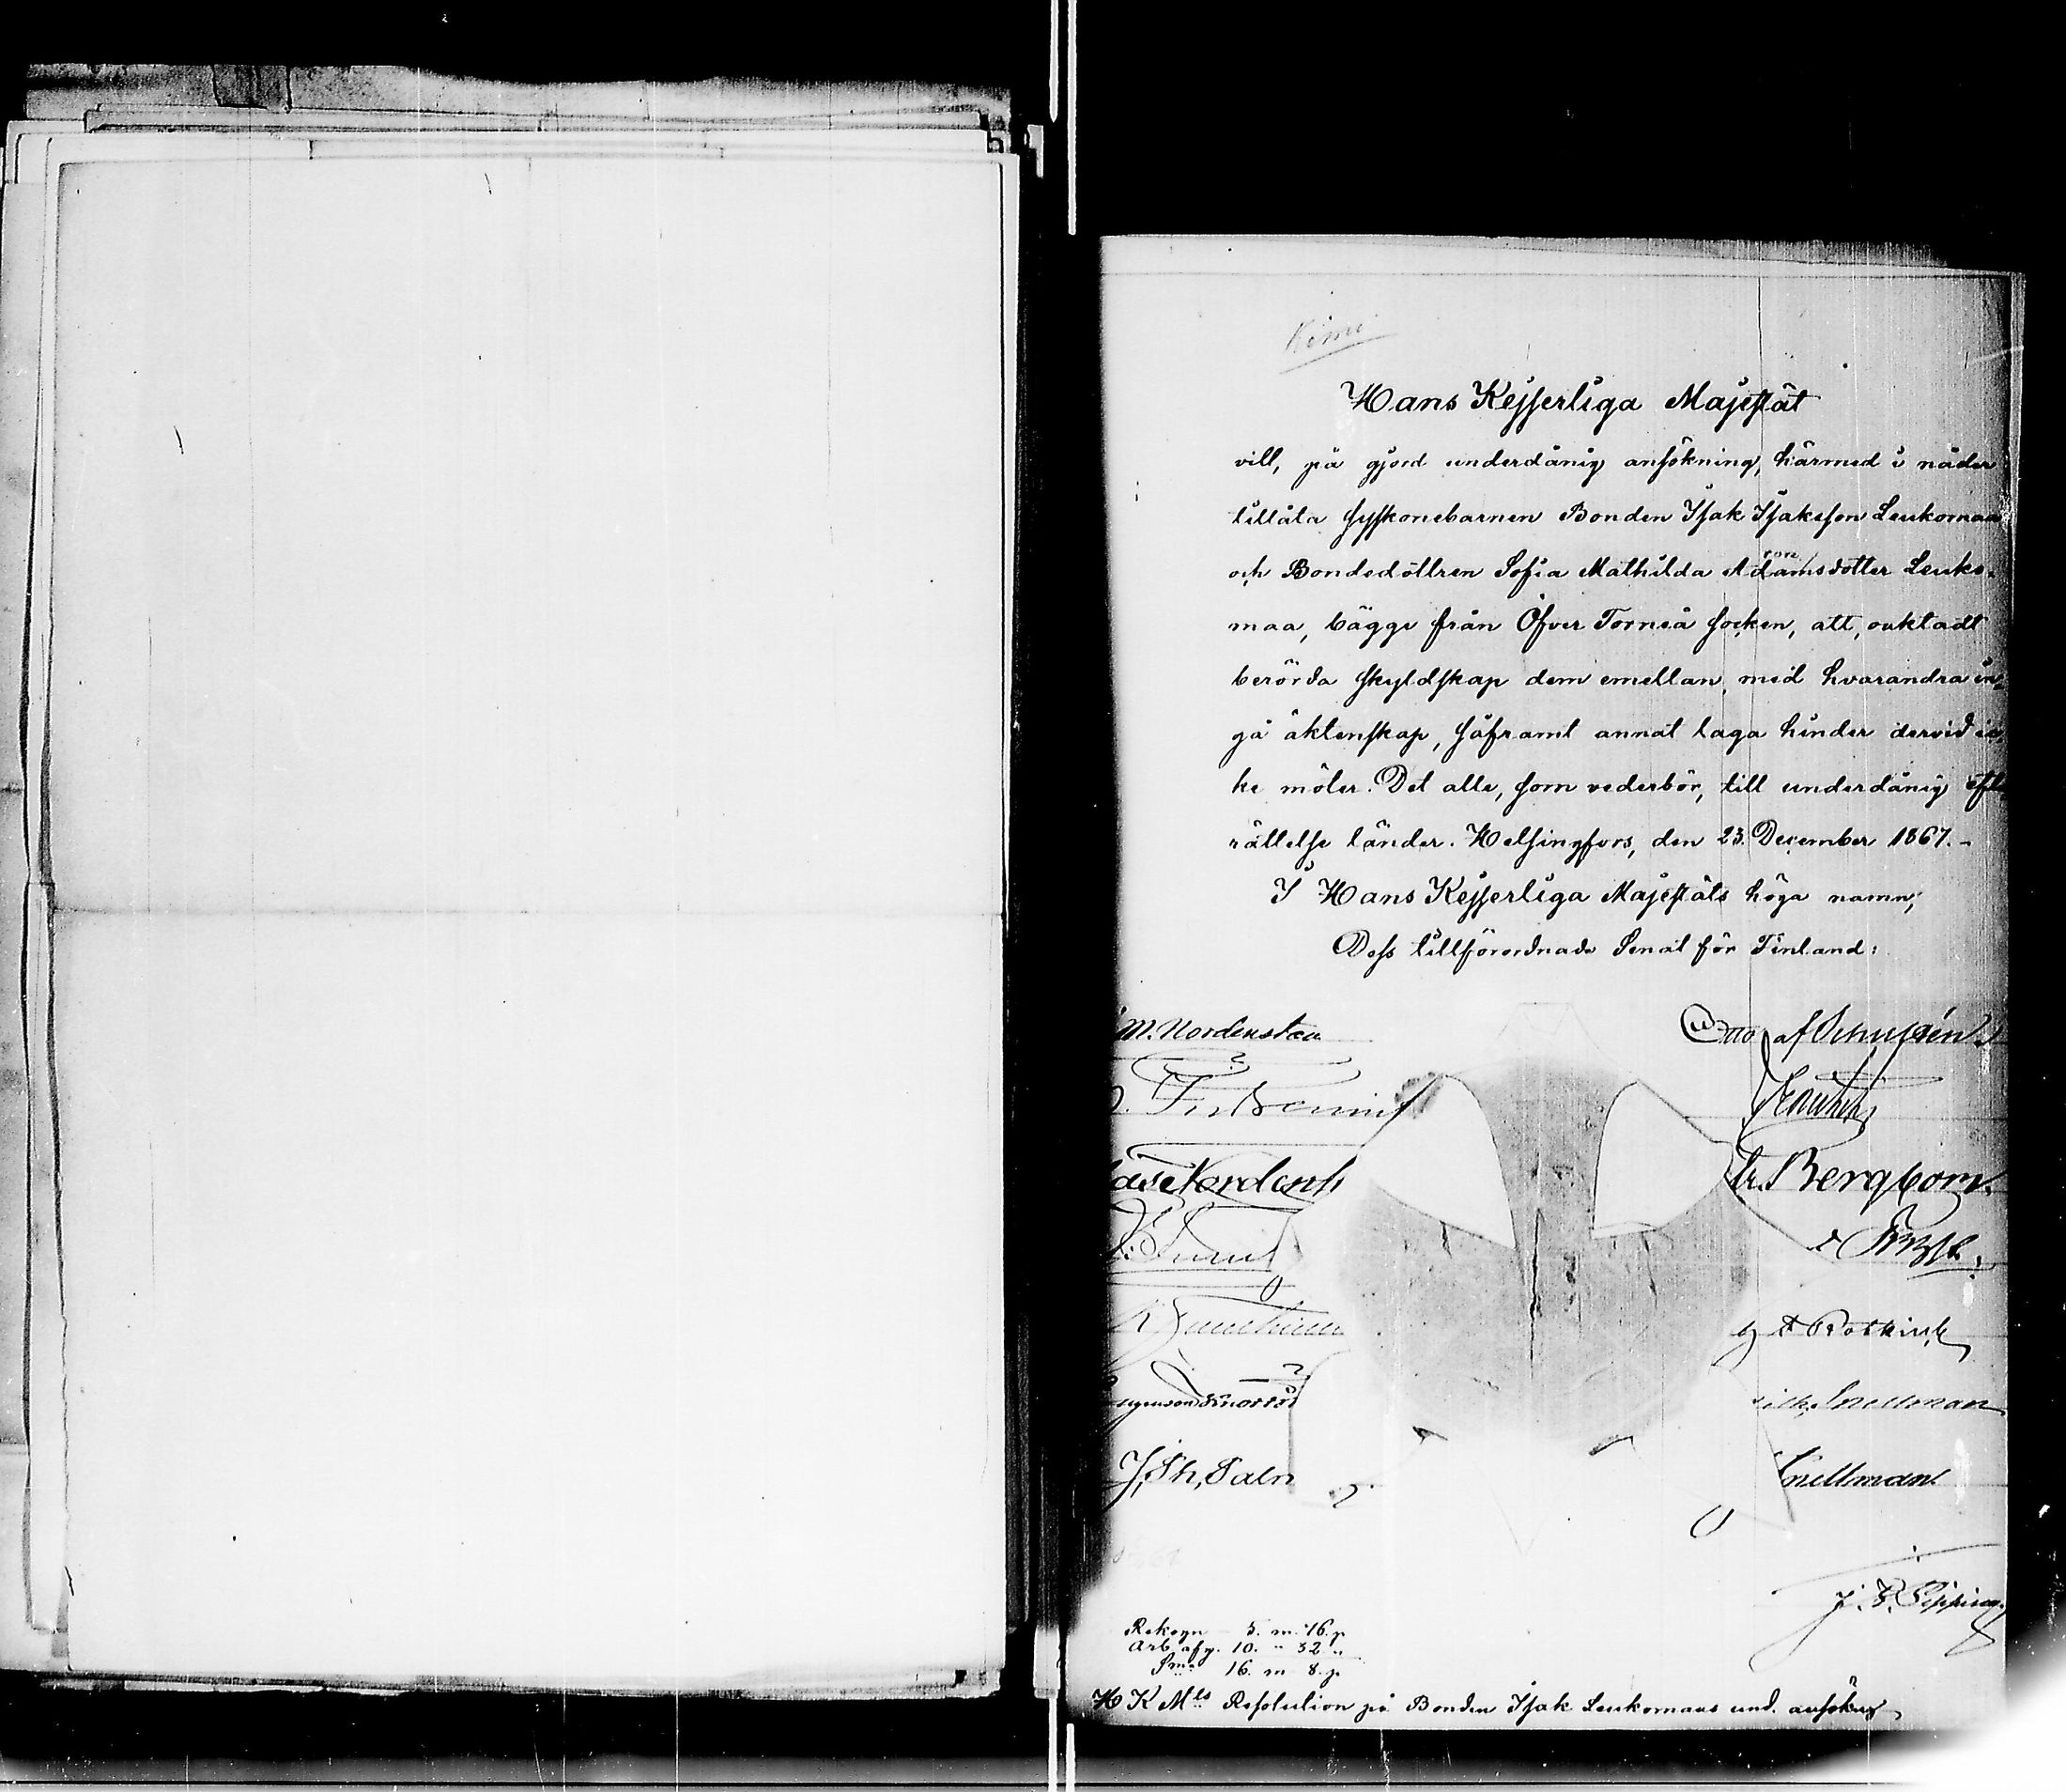 Kimi
Hans Kejserliga Majestät
vill, på gjord underdånig ansökning, härmed i nåder
tillåta syskonebarnen Bonden Isak Isaksson Leukomaa
och Bondedottren Sofia Mathilda Adamsdotter Leuko-
ron
maa, bägge från Öfver Torneå socken, att, oaktadt
berörda skyldskap dem emellan, med hvarandra in-
gå äktenskap, såframt annat laga hinder dervid ic-
ke möter. Det alle, som vederbör, till underdånig efter-
rättelse länder. Helsingfors, den 23. December 1867.-
I Hans Kejserliga Majestäts höga namn;
Dess tillförordnade Senat för Finland:
M. Nordenstam
Otto af
Bergbom.
Snellman
J. Ph. Palm
Snellman
Rekogn 5. m. 16. p
Arb. afg. 10. " 32 "
Sma 16. m 8. p
H K Mts Resolution på Bonden Isak Leukomaas und. ansökng